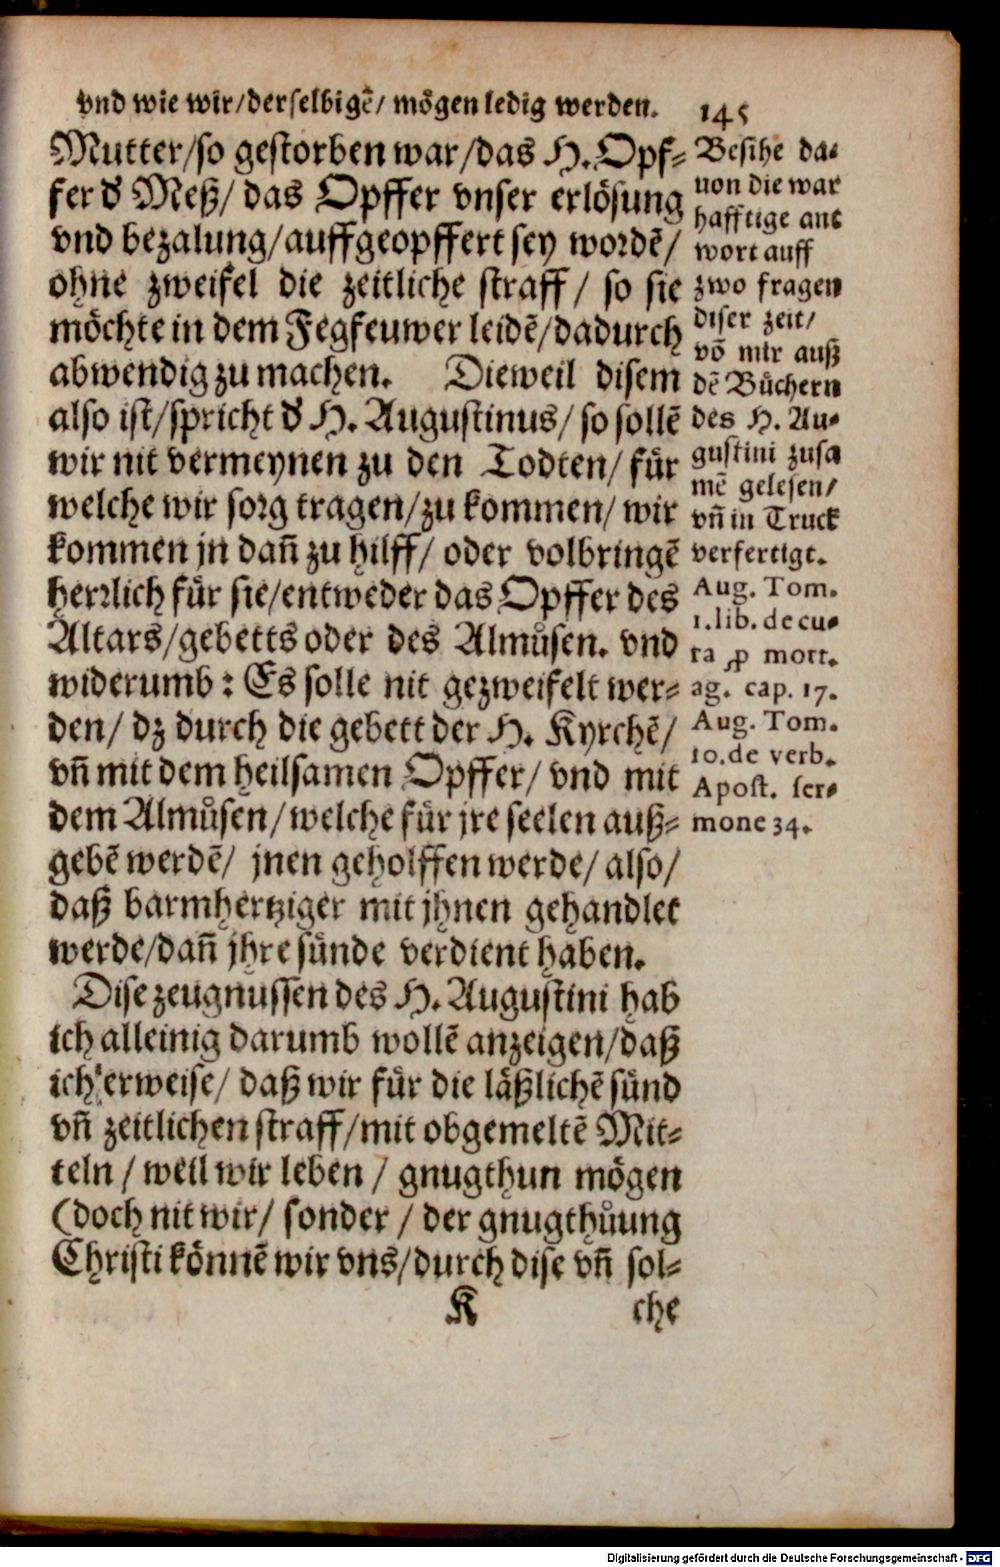 vnd wie wir/derselbigē/ mögen ledig werden. 145
Mutter/so gestorben war/das H. Opf⸗
fer d' Meß/ das Opffer vnser erlösung
vnd bezalung/auffgeopffert sey wordē/
ohne zweifel die zeitliche straff / so sie
möchte in dem Fegfeuwer leidē/dadurch
abwendig zu machen. Dieweil disem
also ist/spricht d' H. Augustinus/ so sollē
wir nit vermeynen zu den Todten/ für
welche wir sorg tragen/zu kommen/ wir
kommen jn dañ zu hilff/ oder volbringē
herrlich für sie/entweder das Opffer des
Altars/gebetts oder des Almůsen. vnd
widerumb: Es solle nit gezweifelt wer⸗
den/ dz durch die gebett der H. Kyrchē/
vñ mit dem heilsamen Opffer/ vnd mit
dem Almůsen/welche für jre seelen auß⸗
gebē werdē/ jnen geholffen werde/ also/
daß barmhertziger mit jhnen gehandlet
werde/dañ jhre sünde verdient haben.
Dise zeugnussen des H. Augustini hab
ich alleinig darumb wollē anzeigen/daß
ich erweise/ daß wir für die läßlichē sünd
vñ zeitlichen straff/mit obgemeltē Mit⸗
teln / weil wir leben / gnugthun mögen
(doch nit wir/ sonder / der gnugthůung
Christi könnē wir vns/durch dise vñ sol⸗
K che
Besihe da⸗
uon die war
hafftige ant
wort auff
zwo fragen
diser zeit/
vō mir auß
dē Büchern
des H. Au⸗
gustini zusa
mē gelesen/
vñ in Truck
verfertigt.
Aug. Tom.
1. lib. de cu⸗
ra ꝓ mort.
ag. cap. 17.
Aug. Tom.
10. de verb.
Apost. ser⸗
mone 34.
Digitalisierung gefördert durch die Deutsche Forschungsgemeinschaft - DFG